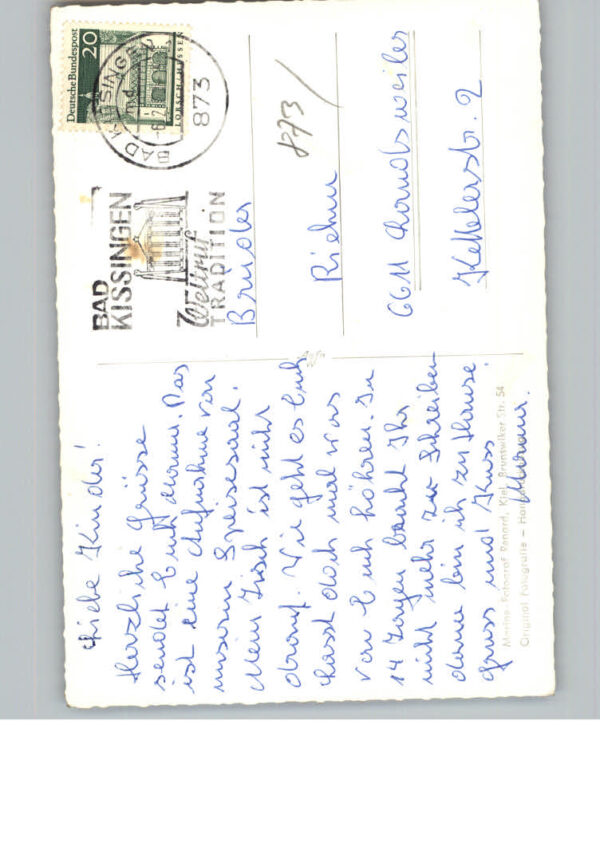 Liebe Kinder!
Herzliche Grüsse
sendet Euch Mama. Das
ist eine Aufnahme von
unserem Speisesaal.
Mein Tisch ist nicht
drauf. Wie geht es Euch
Lasst doch mal was
von Euch höhren. In
14 Tagen braucht Ihr
nicht mehr zu schreiben
dann bin ich zu Hause.
Gruss und Kuss
Mama.
Marine-Fotograf Renard, Kiel, Brunswiker Str. 54
Original Fotografie –
Deutsche Bundespost
20
LORSCH / HESSEN
BAD KISSINGEN
873
BAD
KISSINGEN
Weltruf
TRADITION
873/
Brüder
Riehm
6611
Kettelerstr. 2